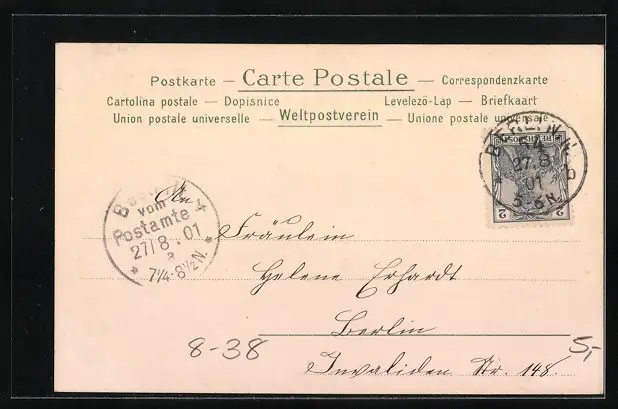 Postkarte — Carte Postale — Correspondenzkarte
Cartolina postale — Dopisnice Levelezö-Lap — Briefkaart
Union postale universelle — Weltpostverein — Unione postale universale
BERLIN, N.
27.8.
01
5-6N.
2 2
vom
Postamte 4
27/8.01
a
7¼-8½N.
An
Fräulein
Helene Erhardt
Berlin
Invaliden Str. 148.
8-38
5,-